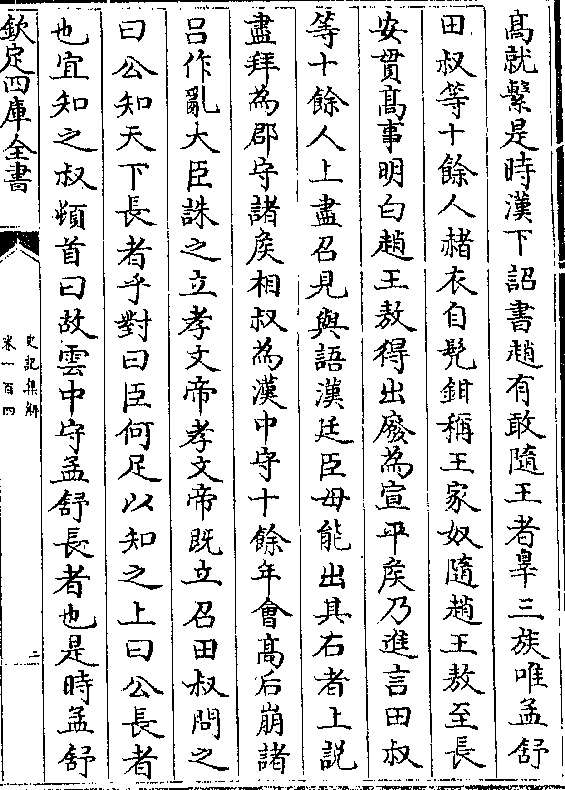 高就繫是時漢下詔書趙有敢隨王者辠三族唯孟舒
田叔等十餘人赭衣自髠鉗稱王家奴隨趙王敖至長
安貫髙事明白趙王敖得出廢為宣平矦乃進言田叔
等十餘人上盡召見與語漢廷臣毋能出其右者上説
盡拜為郡守諸矦相叔為漢中守十餘年會高后崩諸
吕作亂大臣誅之立孝文帝孝文帝既立召田叔問之
曰公知天下長者乎對曰臣何足以知之上曰公長者
也宜知之叔頓首曰故雲中守孟舒長者也是時孟舒
欽定四庫全書
史記集解
卷一百四
二